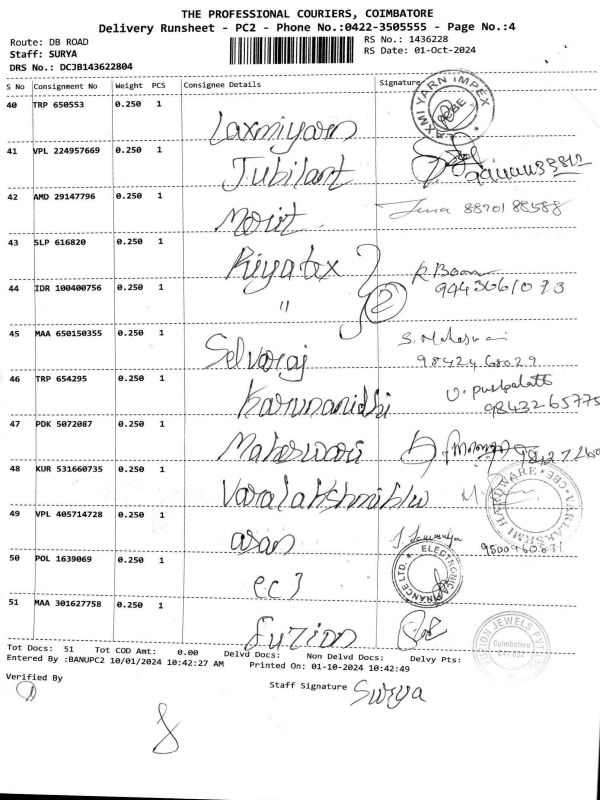 THE PROFESSIONAL COURIERS, COIMBATORE
Delivery Runsheet - PC2 - Phone No.:0422-3505555 - Page No.:4
Route: DB ROAD RS No.: 1436228
Staff: SURYA RS Date: 01-Oct-2024
DRS No.: DCJB143622804
S No Consignment No Weight PCS Consignee Details Signature
40 TRP 650553 0.250 1 Laxmiyarn LAXMI YARN IMPEX CBE
41 VPL 224957669 0.250 1 Jubilant
42 AMD 29147796 0.250 1 8870188588
43 SLP 616820 0.250 1 Riyatex
44 IDR 100400756 0.250 1 " 2 9443661073
45 MAA 650150355 0.250 1 Selvaraj S. Maheswari
9842468029
46 TRP 654295 0.250 1 Karunanidhi 9843265775
47 PDK 5072087 0.250 1 Maheswari
48 KUR 531660735 0.250 1 VARLAKSHMI HARDWARE CBE
49 VPL 405714728 0.250 1 9500960871
50 POL 1639069 0.250 1 ELECTRONICA FINANCE LTD.
51 MAA 301627758 0.250 1 Fuzion JEWELS PVT LTD Coimbatore
Tot Docs: 51 Tot COD Amt: 0.00 Delvd Docs: Non Delvd Docs: Delvy Pts:
Entered By :BANUPC2 10/01/2024 10:42:27 AM Printed On: 01-10-2024 10:42:49
Verified By Staff Signature Surya